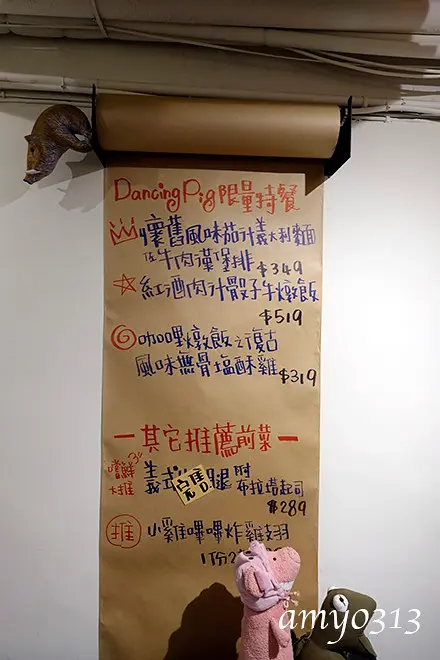 DancingPig限量特餐
懷舊風味茄汁義大利麵
佐牛肉漢堡排 $349
紅酒肉汁骰子牛燉飯
$519
咖哩燉飯之復古
風味無骨塩酥雞 $319
一其它推薦前菜一
嚐鮮
大推
義式 完售 腿附
布拉塔起司
$289
推
小雞嗶嗶炸雞翅
1份2
amy0313